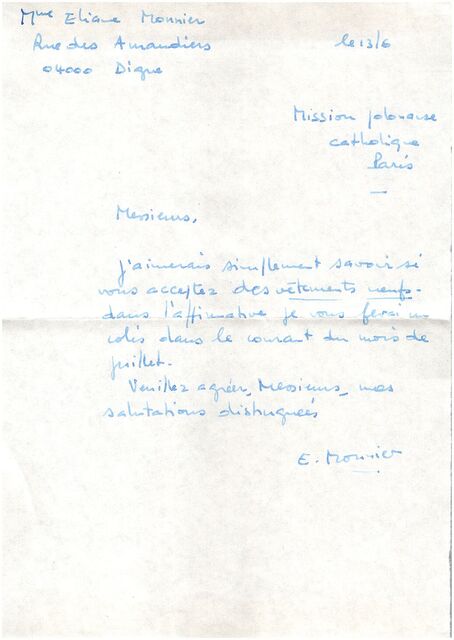 Mme Eliane Monnier
Rue des Amandiers
le 13/6
04000 Digne
Mission polonaise
catholique
Paris
Messieurs,
J'aimerais simplement savoir si
vous acceptez des vêtements neufs.
dans l'affirmative je vous ferai un
colis dans le courant du mois de
juillet.
Veuillez agréer, Messieurs, mes
salutations distinguées
E. Monnier